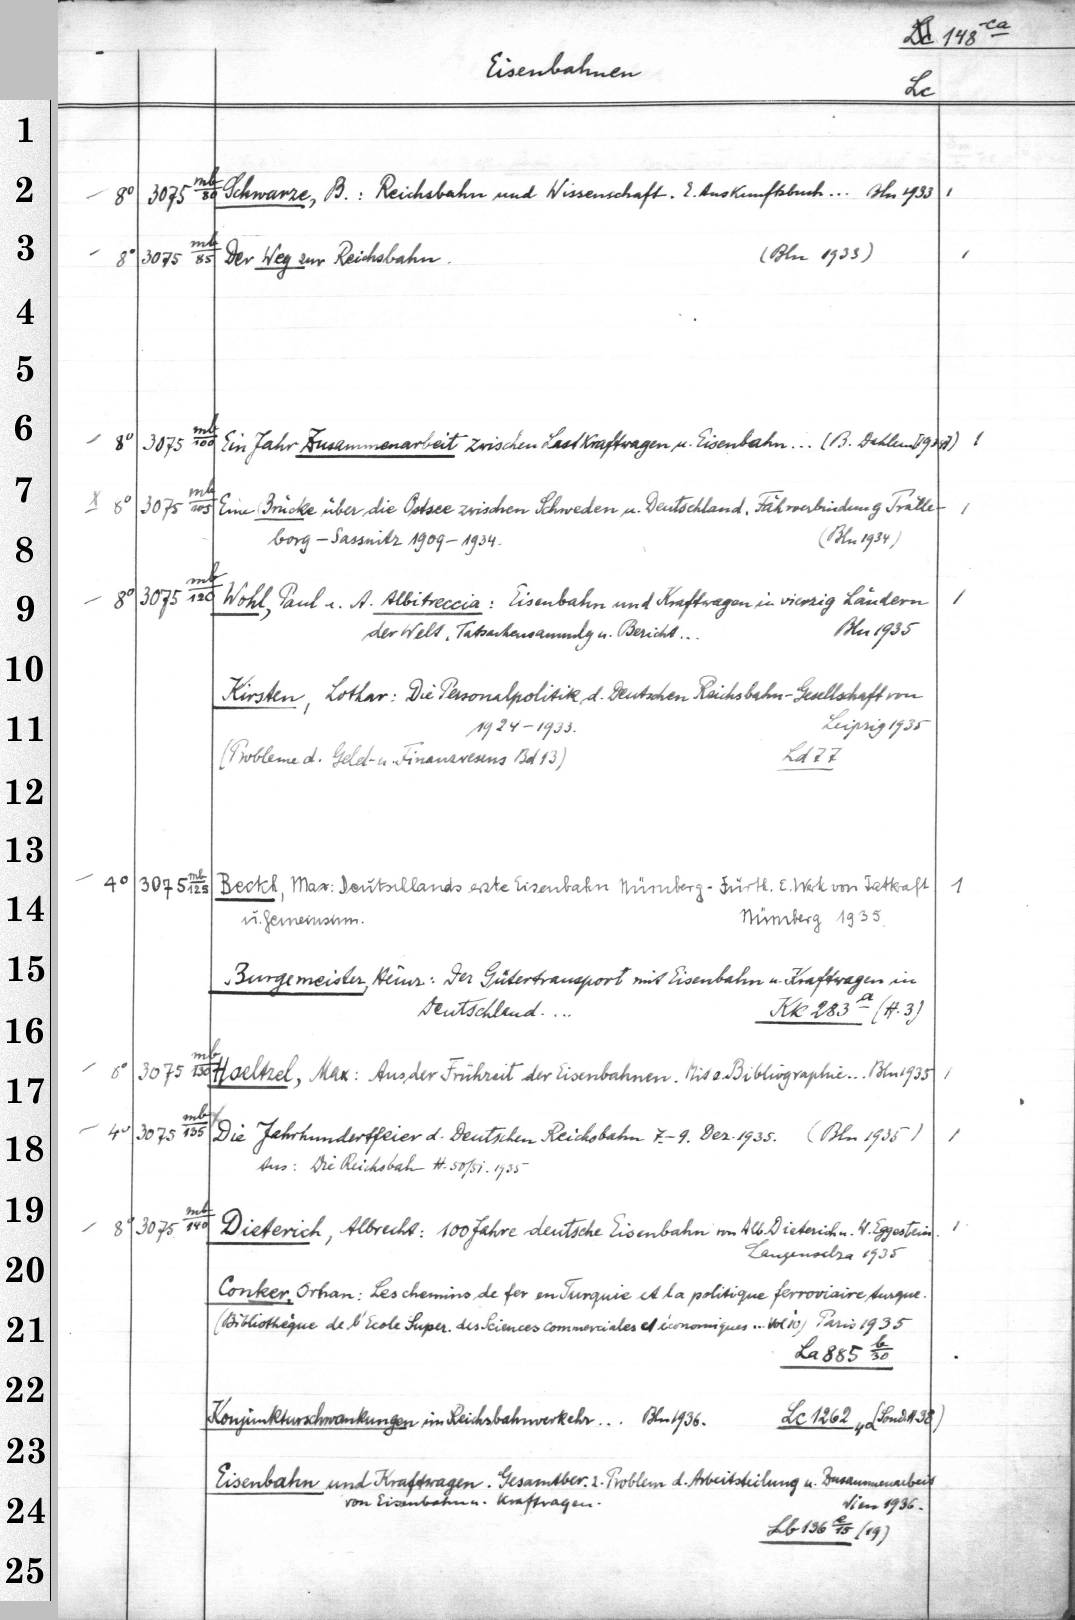 Lc 148 ca
Eisenbahnen
Lc
1
2 – 8° 3075 mb/80 Schwarze, B.: Reichsbahn und Wissenschaft. E. Auskunftsbuch... Bln 1933 1
3 – 8° 3075 mb/85 Der Weg zur Reichsbahn. (Bln 1933) 1
4
5
6 – 8° 3075 mb/100 Ein Jahr Zusammenarbeit zwischen Lastkraftwagen u. Eisenbahn... (B. Dahlem 1
7 x 8° 3075 mb/105 Eine Brücke über die Ostsee zwischen Schweden u. Deutschland. Fährverbindung Trälle- 1
8 borg – Sassnitz 1909–1934. (Bln 1934)
9 – 8° 3075 mb/120 Wohl, Paul u. A. Albitreccia: Eisenbahn und Kraftwagen in vierzig Ländern 1
der Welt. Tatsachensammlg u. Bericht... Bln 1935
10 Kirsten, Lothar: Die Personalpolitik d. Deutschen Reichsbahn-Gesellschaft von
11 1924–1933. Leipzig 1935
(Probleme d. Geld- u. Finanzwesens Bd 13) Ld 77
12
13
14 – 4° 3075 mb/125 Beckh, Max: Deutschlands erste Eisenbahn Nürnberg-Fürth. E. Werk von Tatkraft 1
u. Gemeinsinn. Nürnberg 1935.
15 Burgemeister, Heinz: Der Gütertransport mit Eisenbahn u. Kraftwagen in
16 Deutschland.... Kk 283 a (H. 3)
17 – 8° 3075 mb/130 Hoeltzel, Max: Aus der Frühzeit der Eisenbahnen. Mit e. Bibliographie... Bln 1935 1
18 – 4° 3075 mb/135 Die Jahrhundertfeier d. Deutschen Reichsbahn 7.–9. Dez. 1935. (Bln 1935) 1
Aus: Die Reichsbahn H. 50/51. 1935
19 – 8° 3075 mb/140 Dieterich, Albrecht: 100 Jahre deutsche Eisenbahn von Alb. Dieterich u. W. Eggestein. 1
20 Langensalza 1935
Conker, Orhan: Les chemins de fer en Turquie et la politique ferroviaire turque.
21 (Bibliothèque de l'Ecole Super. des Sciences commerciales et économiques... Vol 10) Paris 1935
La 885 b/30
22 Konjunkturschwankungen im Reichsbahnverkehr... Bln 1936. Lc 1262 4α (Sond. H. 38)
23 Eisenbahn und Kraftwagen. Gesamtber. z. Problem d. Arbeitsteilung u. Zusammenarbeit
24 von Eisenbahn u. Kraftwagen. Wien 1936.
Lb 136 e/15 (19)
25